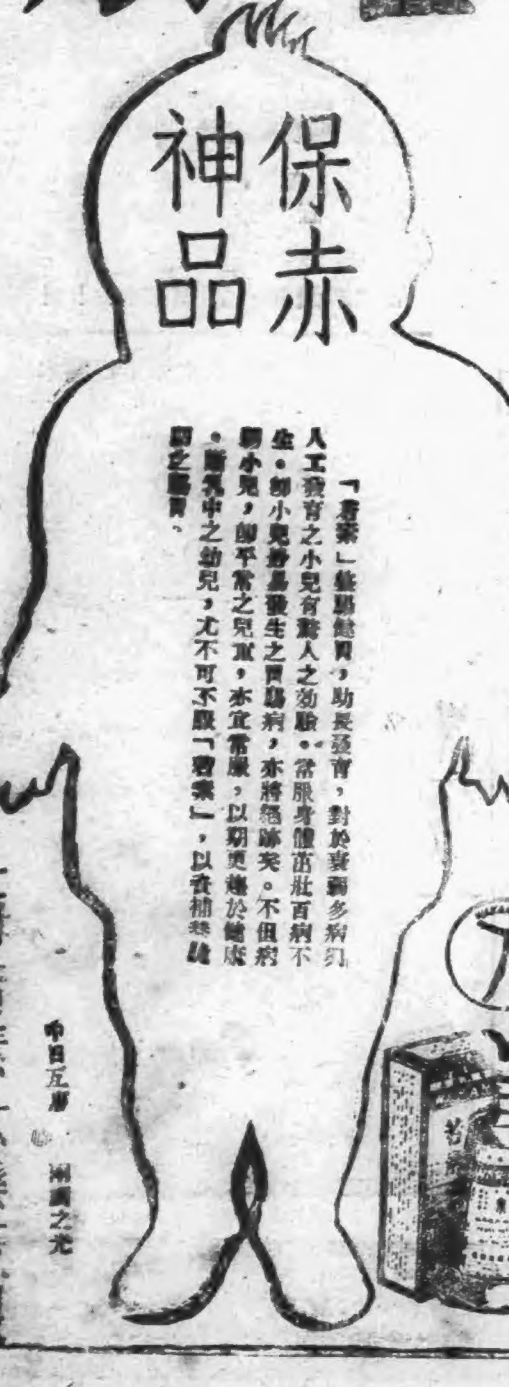 保赤
神品
「若素」整腸健胃,助長發育,對於衰弱多病
人工發育之小兒有驚人之効驗。常服身體茁壯百病不
生。卽小兒最易發生之胃腸病,亦將絕跡矣。不但病
弱小兒,卽平常之兒童,亦宜常服,以期更趨於健康
。哺乳中之幼兒,尤不可不服「若素」,以
之腸胃。
中日互惠 兩國之光
若